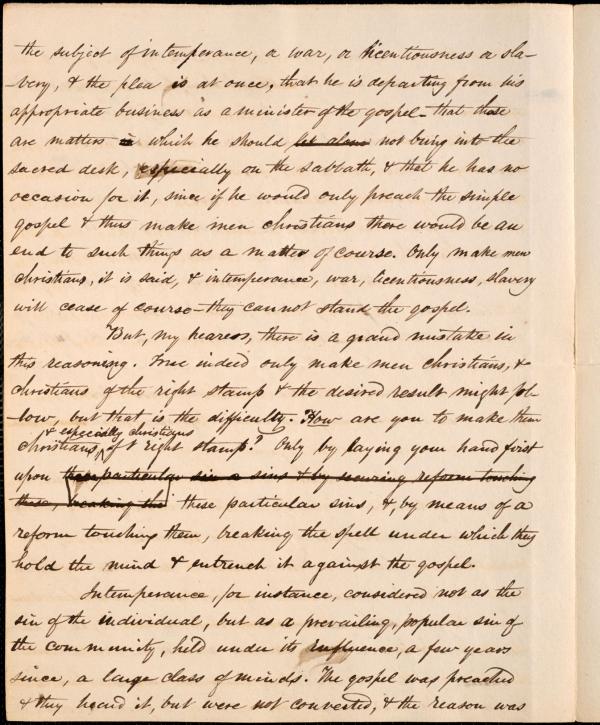 the subject of intemperance, or war, or licentiousness or sla-
-very, & the plea is at once, that he is departing from his
appropriate business as a minister of the gospel - that these
are matters in which he should let alone not bring into the
sacred desk, especially on the sabbath, & that he has no
occasion for it, since if he would only preach the simple
gospel & thus make men christians there would be an
end to such things as a matter of course. Only make men
christians, it is said, & intemperance, war, licentiousness, slavery
will cease of course - they cannot stand the gospel.
But, my hearers, there is a grand mistake in
this reasoning. True indeed only make men christians, &
christians of the right stamp & the desired result might fol-
-low, but that is the difficulty. How are you to make them
& especially christians
christians, of t right stamp? Only by laying your hand first
upon these particular sins & by securing reform touching
these, breaking the these particular sins, & by means of a
reform touching them, breaking the spell under which they
hold the mind & entrench it against the gospel.
Intemperance, for instance, considered not as the
sin of the individual, but as a prevailing, popular sin of
the community, held under its influence, a few years
since, a large class of minds. The gospel was preached
& they heard it, but were not converted, & the reason was